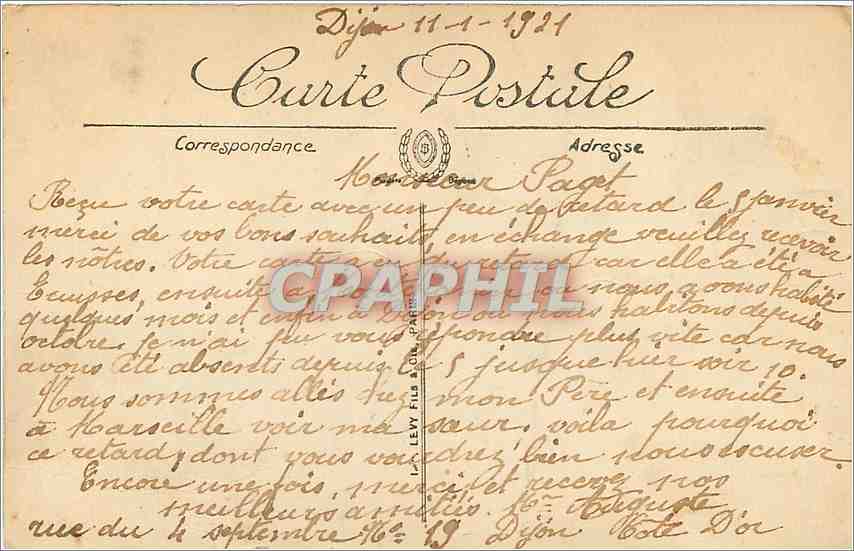 Dijon 11-1-1921
Carte Postale
Correspondance
Adresse
Monsieur Paget
Reçu votre carte avec un peu de retard le 5 janvier
merci de vos bons souhaits, en échange veuillez recevoir
les nôtres. Votre carte a eu du retard car elle a été a
Ecuisses, ensuite a nous, avons habité
quelques mois et enfin a Dijon ou nous habitons depuis
octobre. Je n'ai peu vous répondre plus vite car nous
avons été absents depuis le 5 jusque hier soir 10.
Nous sommes allés chez mon Père et ensuite
à Marseille voir ma sœur. voila pourquoi
ce retard, dont vous voudrez bien nous escuser.
Encore une fois, merci, et recevez nos
meilleurs amitiés. Auguste
rue du 4 septembre No 19 Dijon Kote D'or
LEVY FILS & Cie, PARIS
CPAPHIL